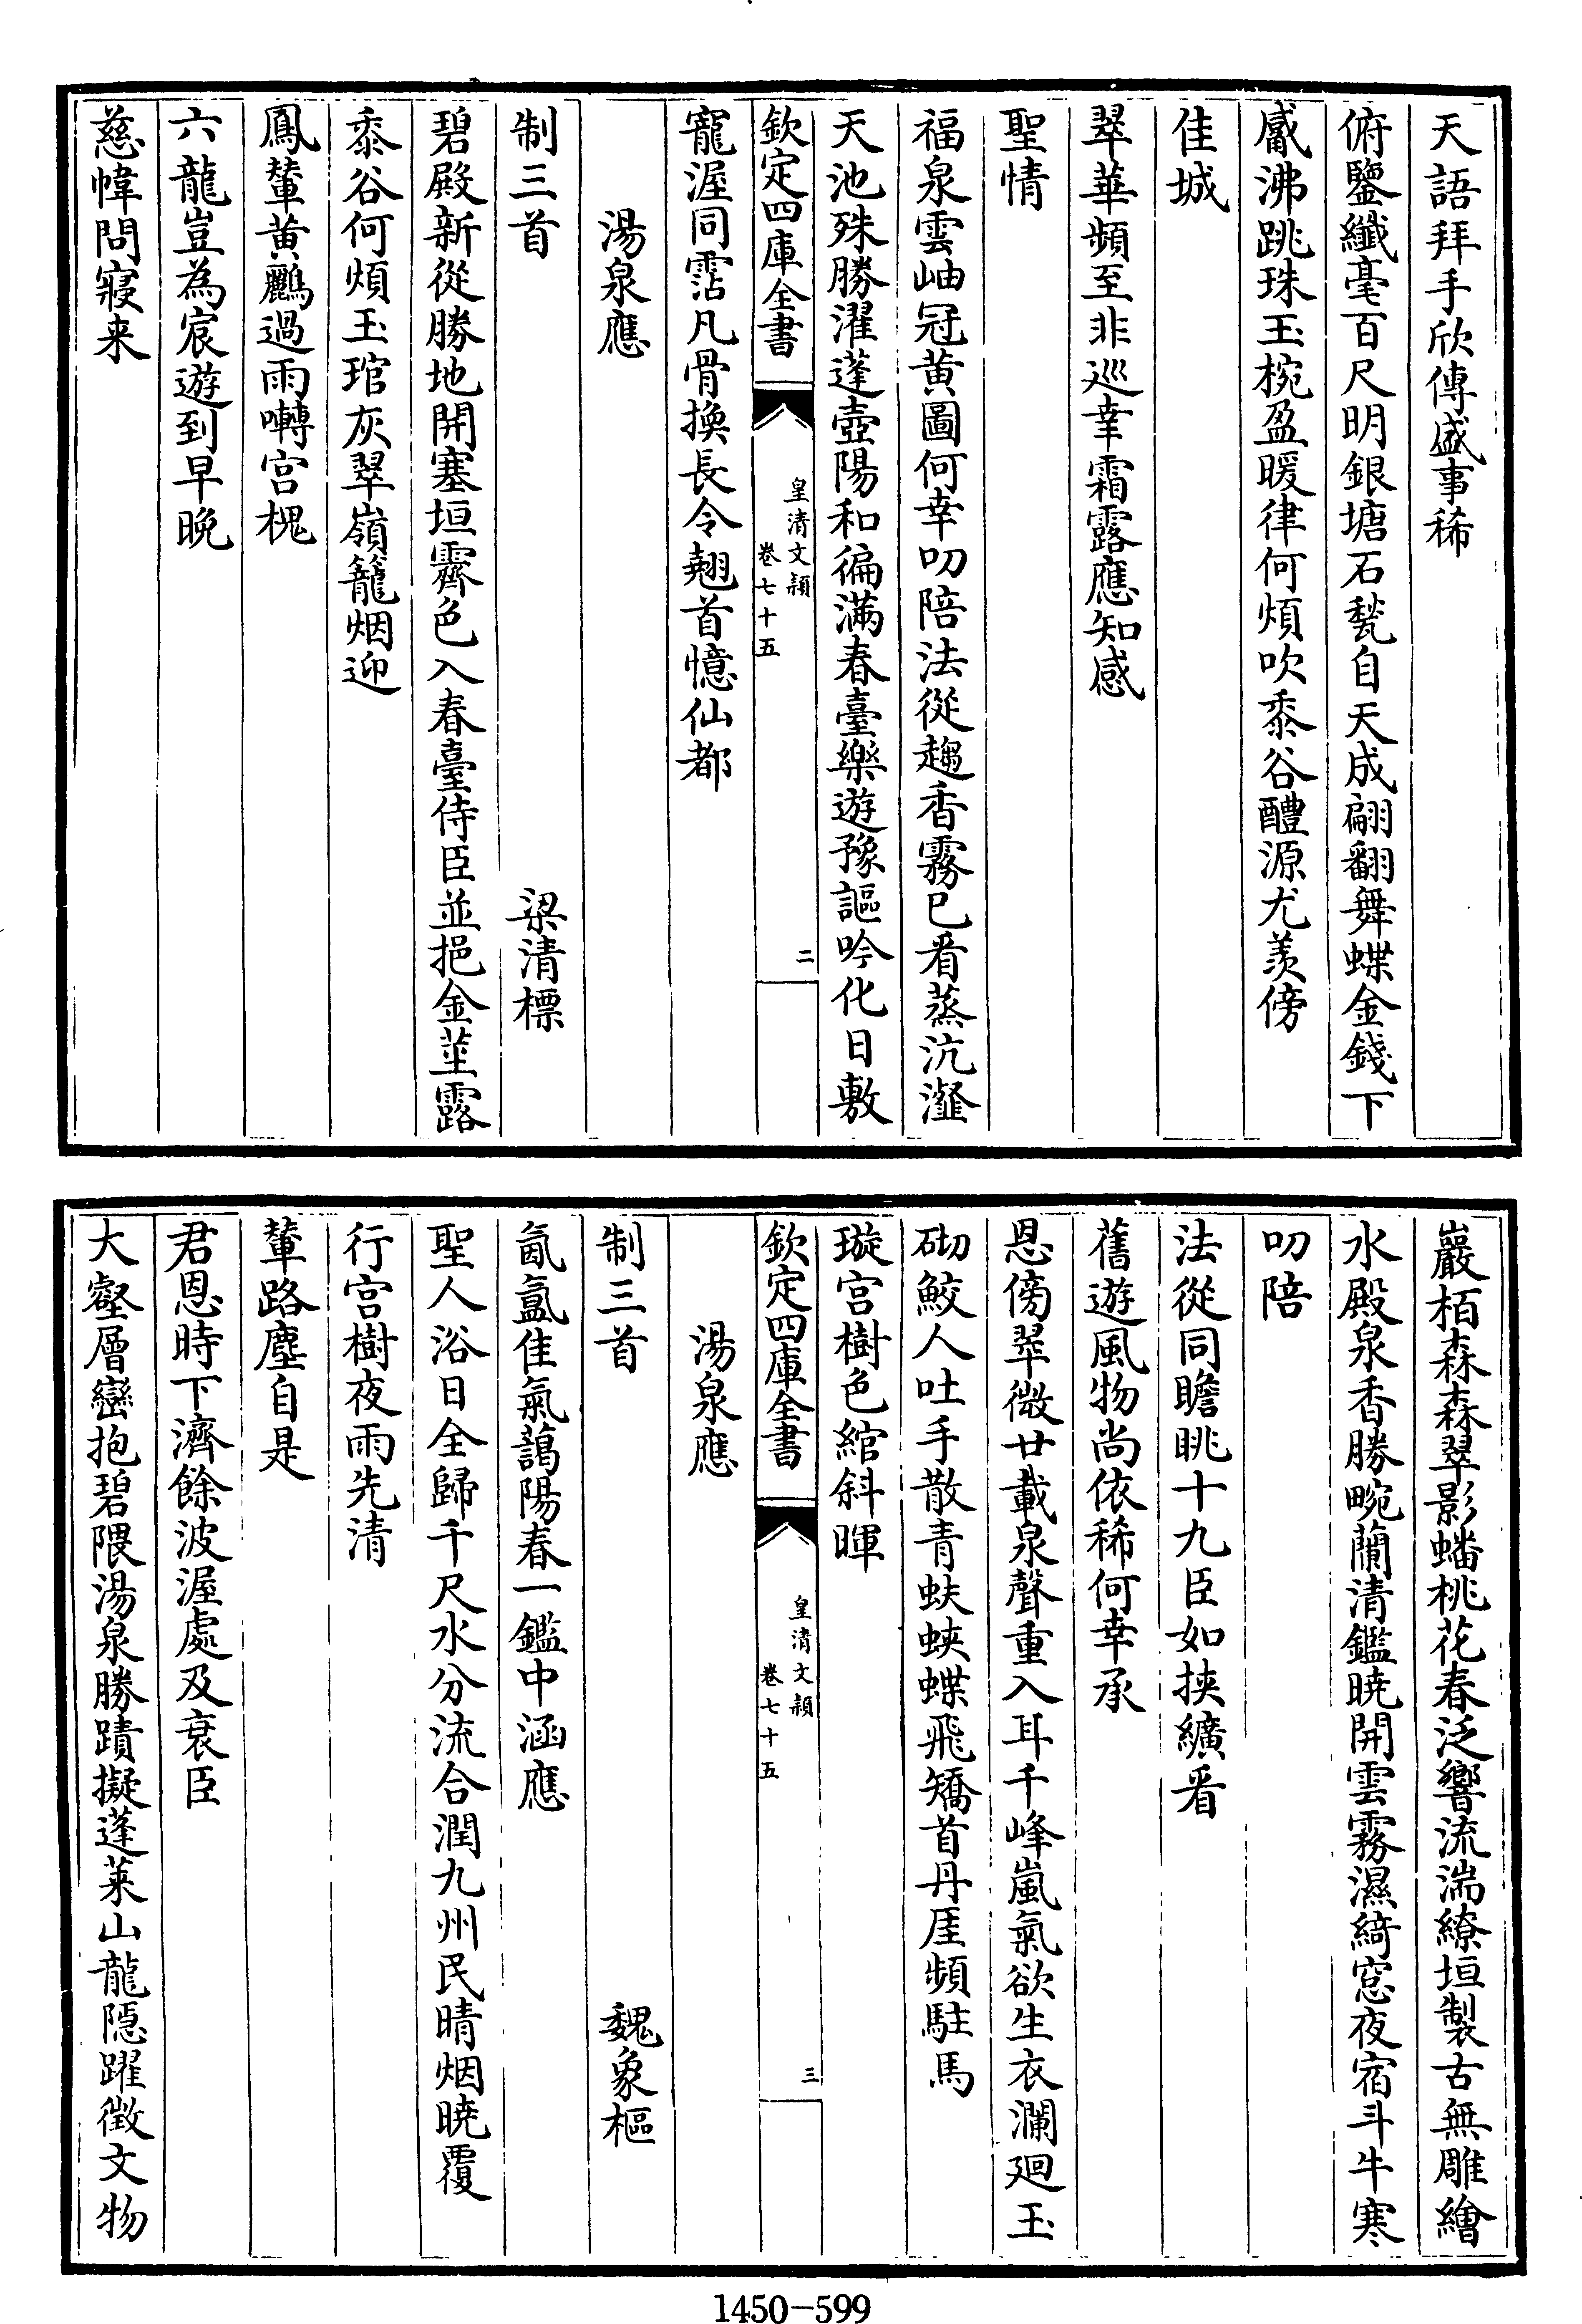 天語拜手欣傳盛事稀
俯鑒纖毫百尺明銀塘石甃自天成翩翻舞蝶金錢下
觱沸跳珠玉椀盈暖律何煩吹黍谷醴源尤羨傍
佳城
翠華頻至非巡幸霜露應知感
聖情
福泉雲岫冠黃圖何幸叨陪法從趨香霧已看蒸沆瀣
天池殊勝濯蓬壺陽和徧滿春臺樂遊豫謳吟化日敷
欽定四庫全書
皇清文穎
卷七十五
二
寵渥同霑凡骨換長令翹首憶仙都
湯泉應
制三首 梁清標
碧殿新從勝地開塞垣霽色入春臺侍臣並挹金莖露
黍谷何煩玉琯灰翠嶺籠烟迎
鳳輦黃鸝過雨囀宮槐
六龍豈為宸遊到早晚
慈幃問寢来
巖栢森森翠影蟠桃花春泛響流湍繚垣製古無雕繪
水殿泉香勝畹蘭清鑑曉開雲霧濕綺窓夜宿斗牛寒
叨陪
法從同瞻眺十九臣如挾纊看
舊遊風物尚依稀何幸承
恩傍翠微廿載泉聲重入耳千峰嵐氣欲生衣瀾迴玉
砌鮫人吐手散青蚨蛺蝶飛矯首丹厓頻駐馬
璇宮樹色綰斜暉
欽定四庫全書
皇清文穎
卷七十五
三
湯泉應
制三首 魏象樞
氤氳佳氣藹陽春一鑑中涵應
聖人浴日全歸千尺水分流合潤九州民晴烟曉覆
行宮樹夜雨先清
輦路塵自是
君恩時下濟餘波渥處及衰臣
大壑層巒抱碧隈湯泉勝蹟擬蓬萊山龍隱躍徵文物
1450-599